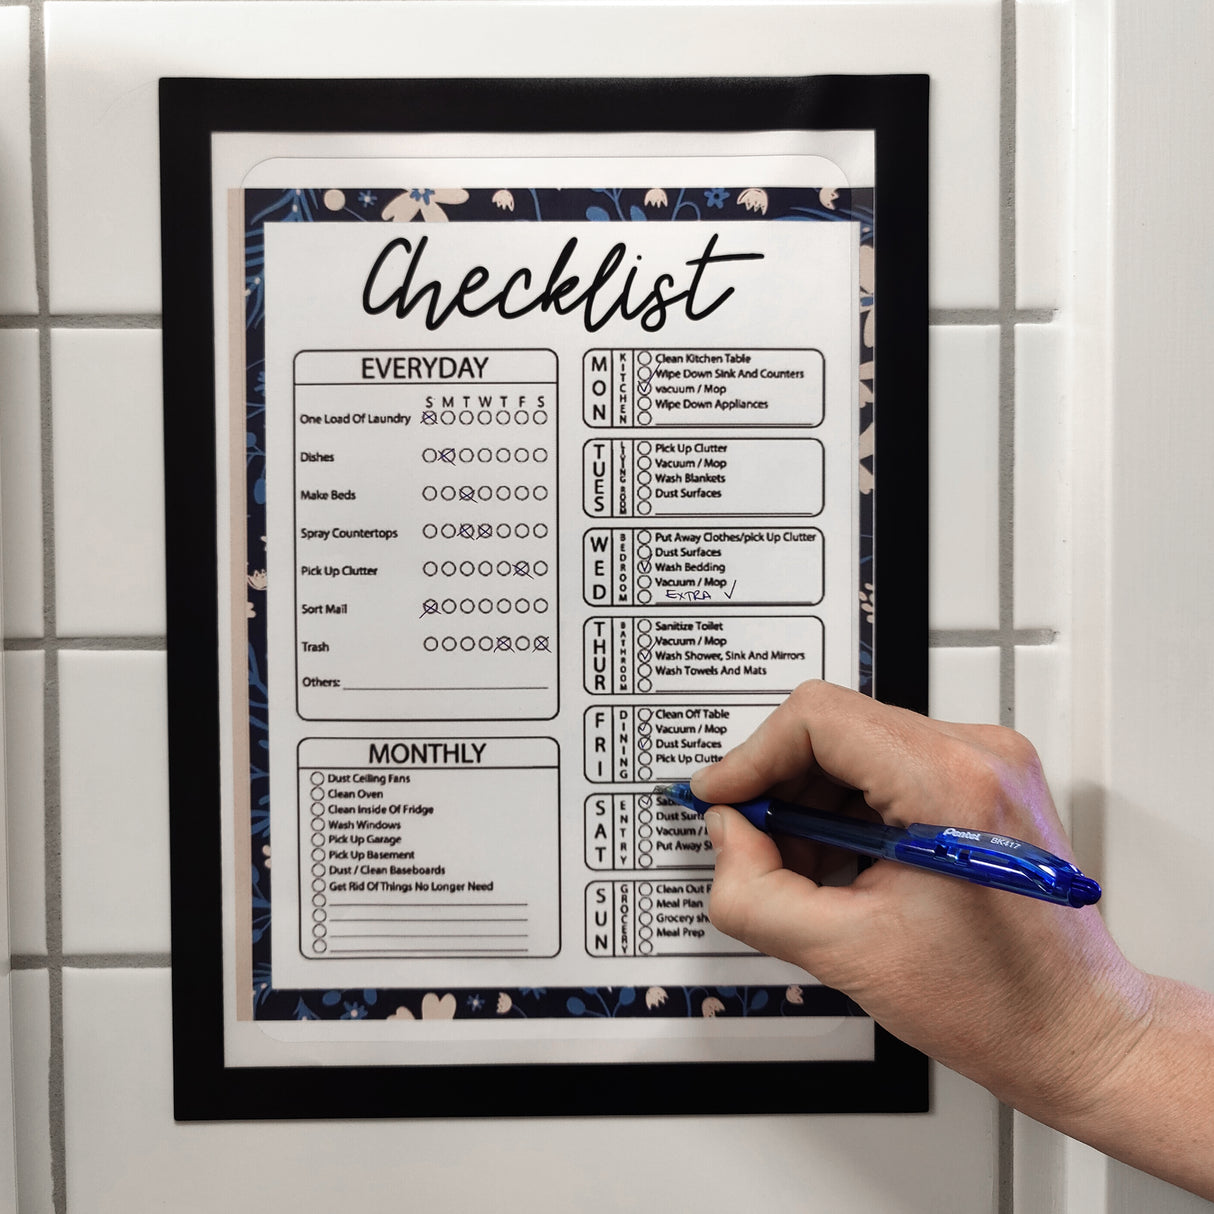 Checklist
EVERYDAY
S M T W T F S
One Load Of Laundry
Dishes
Make Beds
Spray Countertops
Pick Up Clutter
Sort Mail
Trash
Others:
MONTHLY
Dust Ceiling Fans
Clean Oven
Clean Inside Of Fridge
Wash Windows
Pick Up Garage
Pick Up Basement
Dust / Clean Baseboards
Get Rid Of Things No Longer Need
MON
KITCHEN
Clean Kitchen Table
Wipe Down Sink And Counters
vacuum / Mop
Wipe Down Appliances
TUES
LIVING ROOM
Pick Up Clutter
Vacuum / Mop
Wash Blankets
Dust Surfaces
WED
BEDROOM
Put Away Clothes/pick Up Clutter
Dust Surfaces
Wash Bedding
Vacuum / Mop
EXTRA
THUR
BATHROOM
Sanitize Toilet
Vacuum / Mop
Wash Shower, Sink And Mirrors
Wash Towels And Mats
FRI
DINING
Clean Off Table
Vacuum / Mop
Dust Surfaces
Pick Up Clutte
SAT
ENTRY
Dust Surf
Vacuum /
Put Away S
SUN
GROCERY
Clean Out F
Meal Plan
Grocery sh
Meal Prep
Pentel BK417